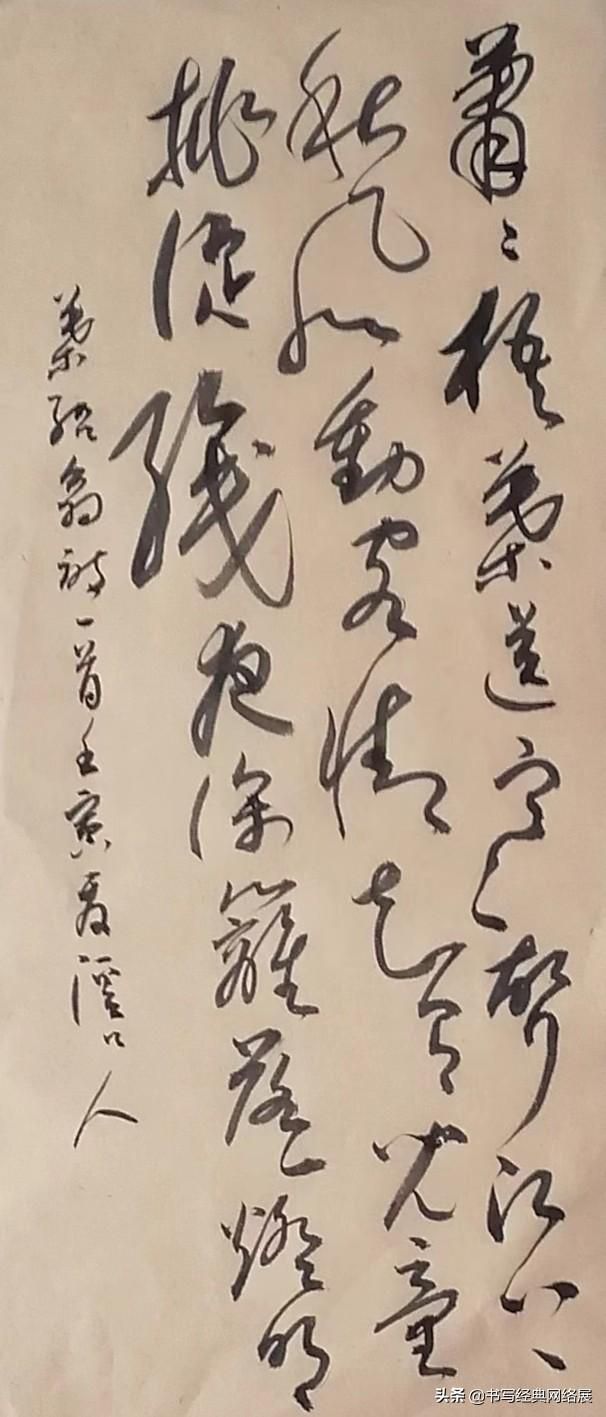 蕭〻梧葉送寒聲江上
秋風動客情知有兒童
挑促織夜深籬落一燈明
葉紹翁詩一首壬寅夏溪口人
头条 @书写经典网络展